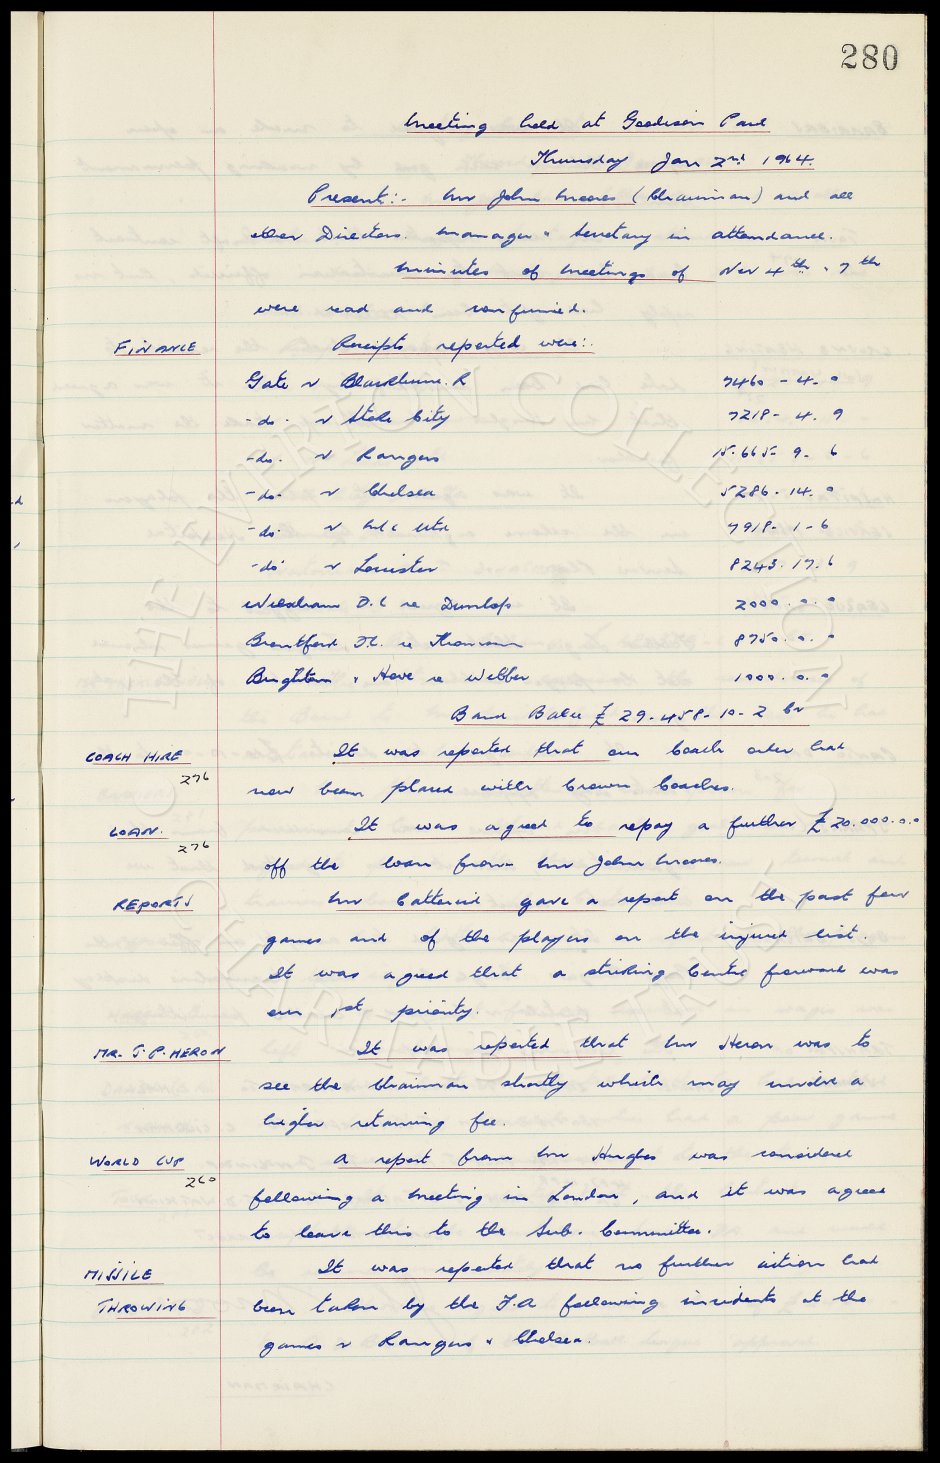 280
Meeting held at Goodison Park
Thursday Jan 2nd 1964.
Present:- Mr John Moores (Chairman) and all
other Directors. Manager & Secretary in attendance.
Minutes of Meetings of Nov 4th & 7th
were read and confirmed.
FINANCE Receipts reported were:-
Gate v Blackburn. R 7460 - 4 - 0
-do- v Stoke City 7218 - 4. 9
-do- v Rangers 15.665 - 9 - 6
-do- v Chelsea 5286 - 14. 0
-do- v M/c Utd 7918 - 1 - 6
-do- v Leicester 8243. 17. 6
Wrexham F.C re Dunlop 2000. 0. 0
Brentford F.C. re Thomson 8750. 0. 0
Brighton & Hove re Webber 1000. 0. 0
Bank Balce £ 29.458-10-2 Cr
COACH HIRE It was reported that our Coach order had
276
now been placed with Crown Coaches.
LOAN. It was agreed to repay a further £20.000.0.0
276
off the loan from Mr John Moores.
REPORTS Mr Catterick gave a report on the past few
games and of the players on the injured list.
It was agreed that a striking Centre forward was
our 1st priority.
MR. T. P. HERON It was reported that Mr Heron was to
see the Chairman shortly which may involve a
higher retaining fee.
WORLD CUP A report from Mr Hughes was considered
260
following a Meeting in London, and it was agreed
to leave this to the Sub. Committee.
MISSILE It was reported that no further action had
THROWING been taken by the F.A following incidents at the
games v Rangers & Chelsea.